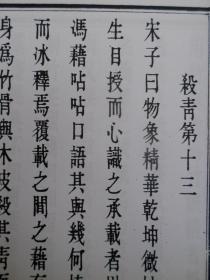 殺青第十三
宋子曰物象精華乾坤微妙
生目授而心識之承載者
馮藉呫呫口語其與幾何
而冰釋焉覆載之間之藉有
身爲竹骨與木皮殺其青而